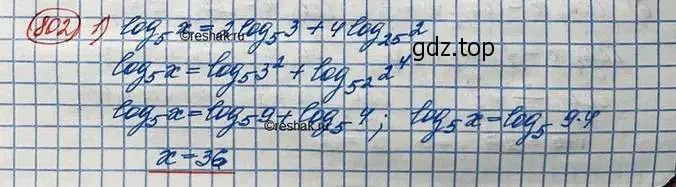 802 1) log₅ x = 2 log₅ 3 + 4 log₂₅ 2
©reshak.ru
gdz.top
log₅ x = log₅ 3² + log₅₂ 2⁴
log₅ x = log₅ 9 + log₅ 4 ; log₅ x = log₅ 9·4
©reshak.ru
x = 36